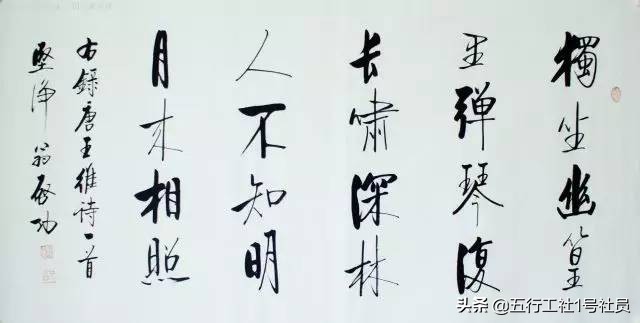 獨坐幽篁
里弹琴復
长嘯深林
人不知明
月来相照
右録唐王維詩一首
堅淨翁啟功
头条 @五行工社1号社员